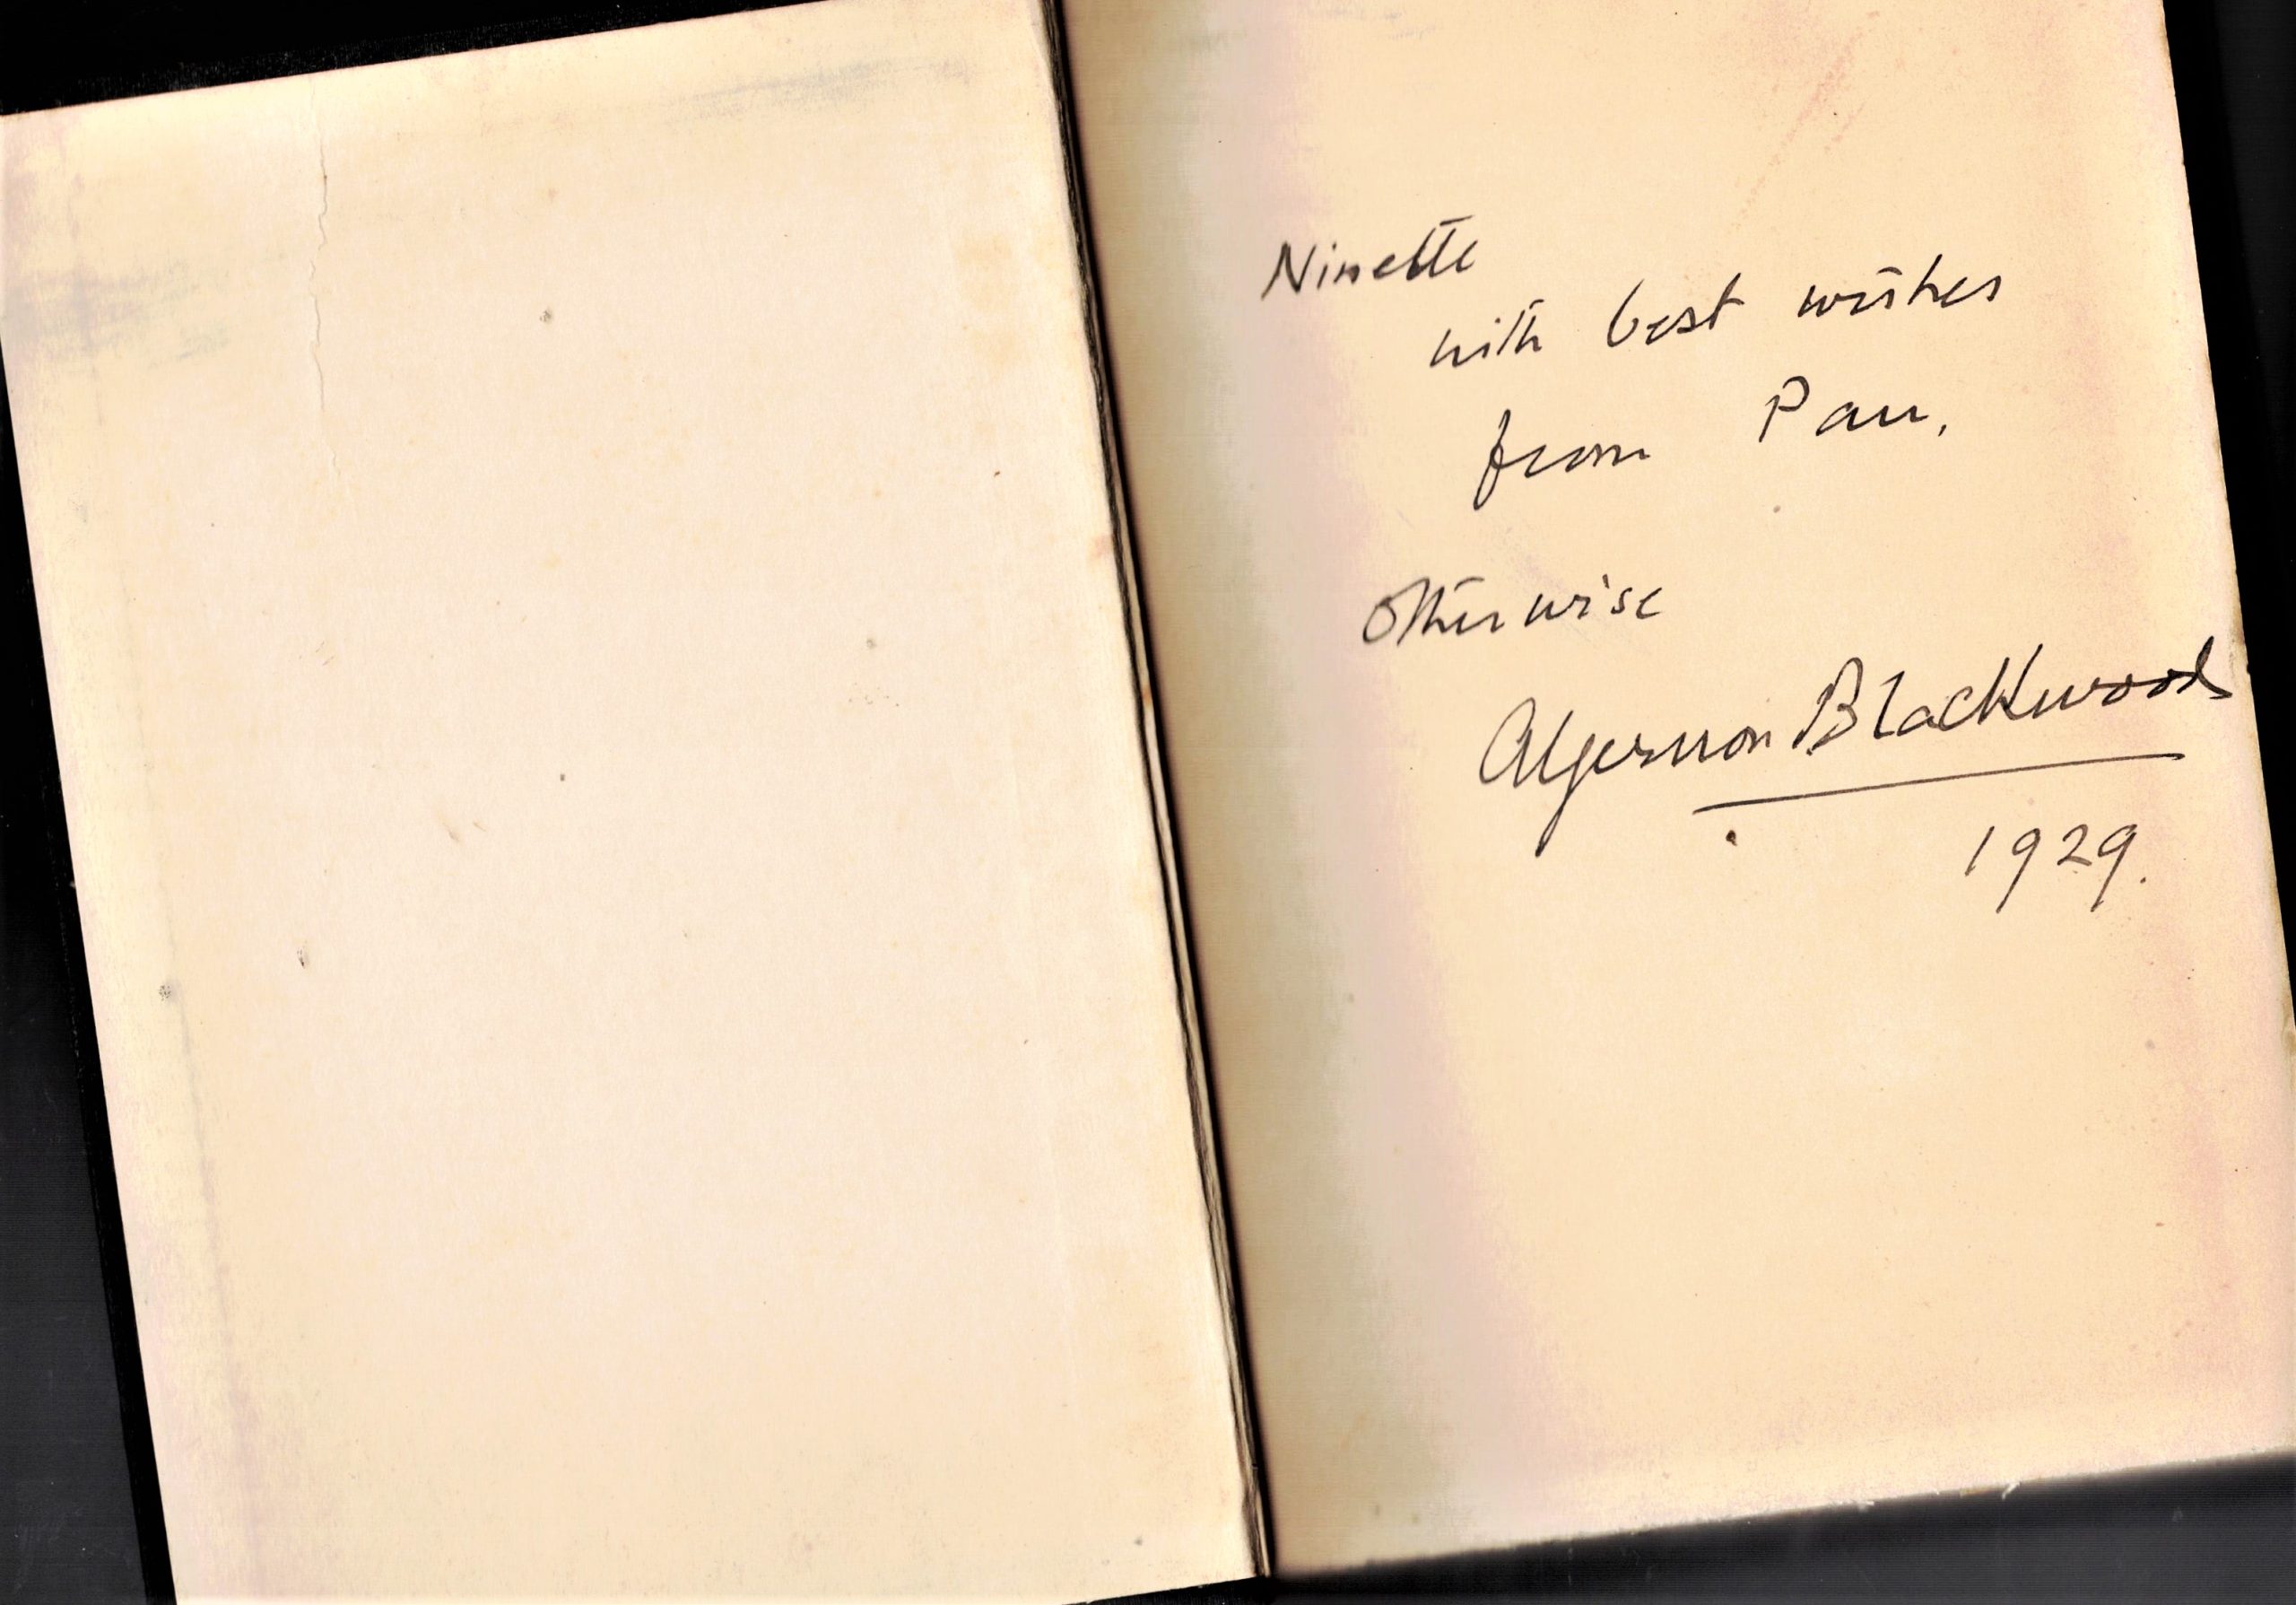 Ninette
with best wishes
from Pan,
Otherwise
Algernon Blackwood
1929.